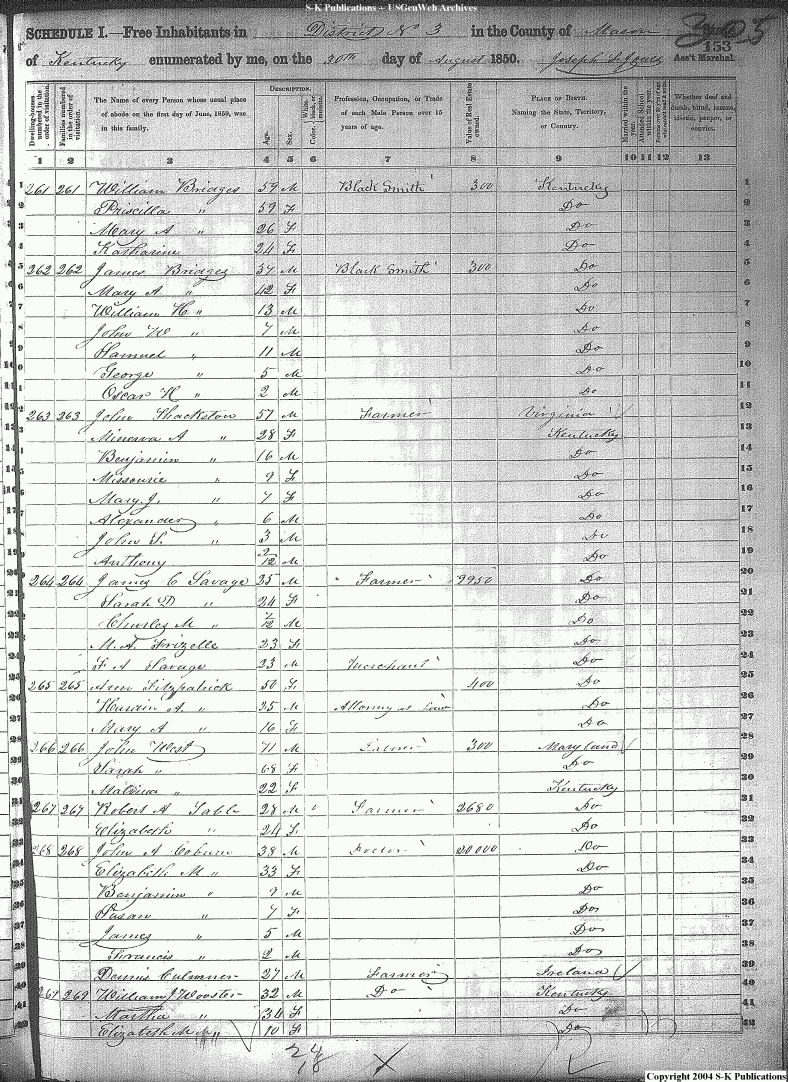 S-K Publications + USGenWeb Archives
305
153
SCHEDULE I.—Free Inhabitants in District N 3 in the County of Mason
of Kentucky enumerated by me, on the 30th day of August 1850. Ass't Marshal.
Dwelling-houses numbered in the order of visitation.
Families numbered in the order of visitation.
The Name of every Person whose usual place of abode on the first day of June, 1850, was in this family.
DESCRIPTION.
Age.
Sex.
Profession, Occupation, or Trade of each Male Person over 15 years of age.
Value of Real Estate owned.
PLACE OF BIRTH. Naming the State, Territory, or Country.
Married within the year.
Attended School within the year.
Whether deaf and dumb, blind, insane, idiotic, pauper, or convict.
1 2 3 4 5 6 7 8 9 10 11 12 13
1 261 261 William Bridges 59 M Black Smith 300 Kentucky 1
2 Priscilla " 59 F Do 2
3 Mary A " 26 F Do 3
4 Katharine 24 F Do 4
5 262 262 James Bridges 37 M Black Smith 300 Do 5
6 Mary A " 12 F Do 6
7 William H " 13 M Do 7
8 John W " 7 M Do 8
9 Samuel " 11 M Do 9
10 George " 5 M Do 10
11 Oscar H " 2 M Do 11
12 263 263 John Shackston 57 M Farmer Virginia 12
13 Minerva A " 28 F Kentucky 13
14 Benjamin " 16 M Do 14
15 Missourie " 9 F Do 15
16 Mary J. " 7 F Do 16
17 Alexander " 6 M Do 17
18 John S. " 3 M Do 18
19 Anthony 2/12 M Do 19
20 264 264 James C Savage 35 M Farmer 9950 Do 20
21 Sarah D " 24 F Do 21
22 Charles M " 7/12 M Do 22
23 M. A. Frizelle 23 F Do 23
24 F A Savage 23 M Merchant Do 24
25 265 265 Ann Fitzpatrick 50 F 400 Do 25
26 A. " 25 M Attorney at Law Do 26
27 Mary A " 16 F Do 27
28 266 266 John West 71 M Farmer 300 Maryland 28
29 Sarah " 68 F Do 29
30 Malvina " 22 F Kentucky 30
31 267 267 Robert A Table 28 M Farmer 2680 Do 31
32 Elizabeth " 24 F Do 32
33 268 268 John A Coburn 38 M Doctor 20000 Do 33
34 Elizabeth M " 33 F Do 34
35 Benjamin " 9 M Do 35
36 Susan " 7 F Do 36
37 James " 5 M Do 37
38 Francis " 2 M Do 38
39 Dennis 27 M Farmer Ireland 39
40 269 269 William J Wooster 32 M Do Kentucky 40
41 Martha " 34 F Do 41
42 Elizabeth M " 10 F Do 42
Copyright 2004 S-K Publications